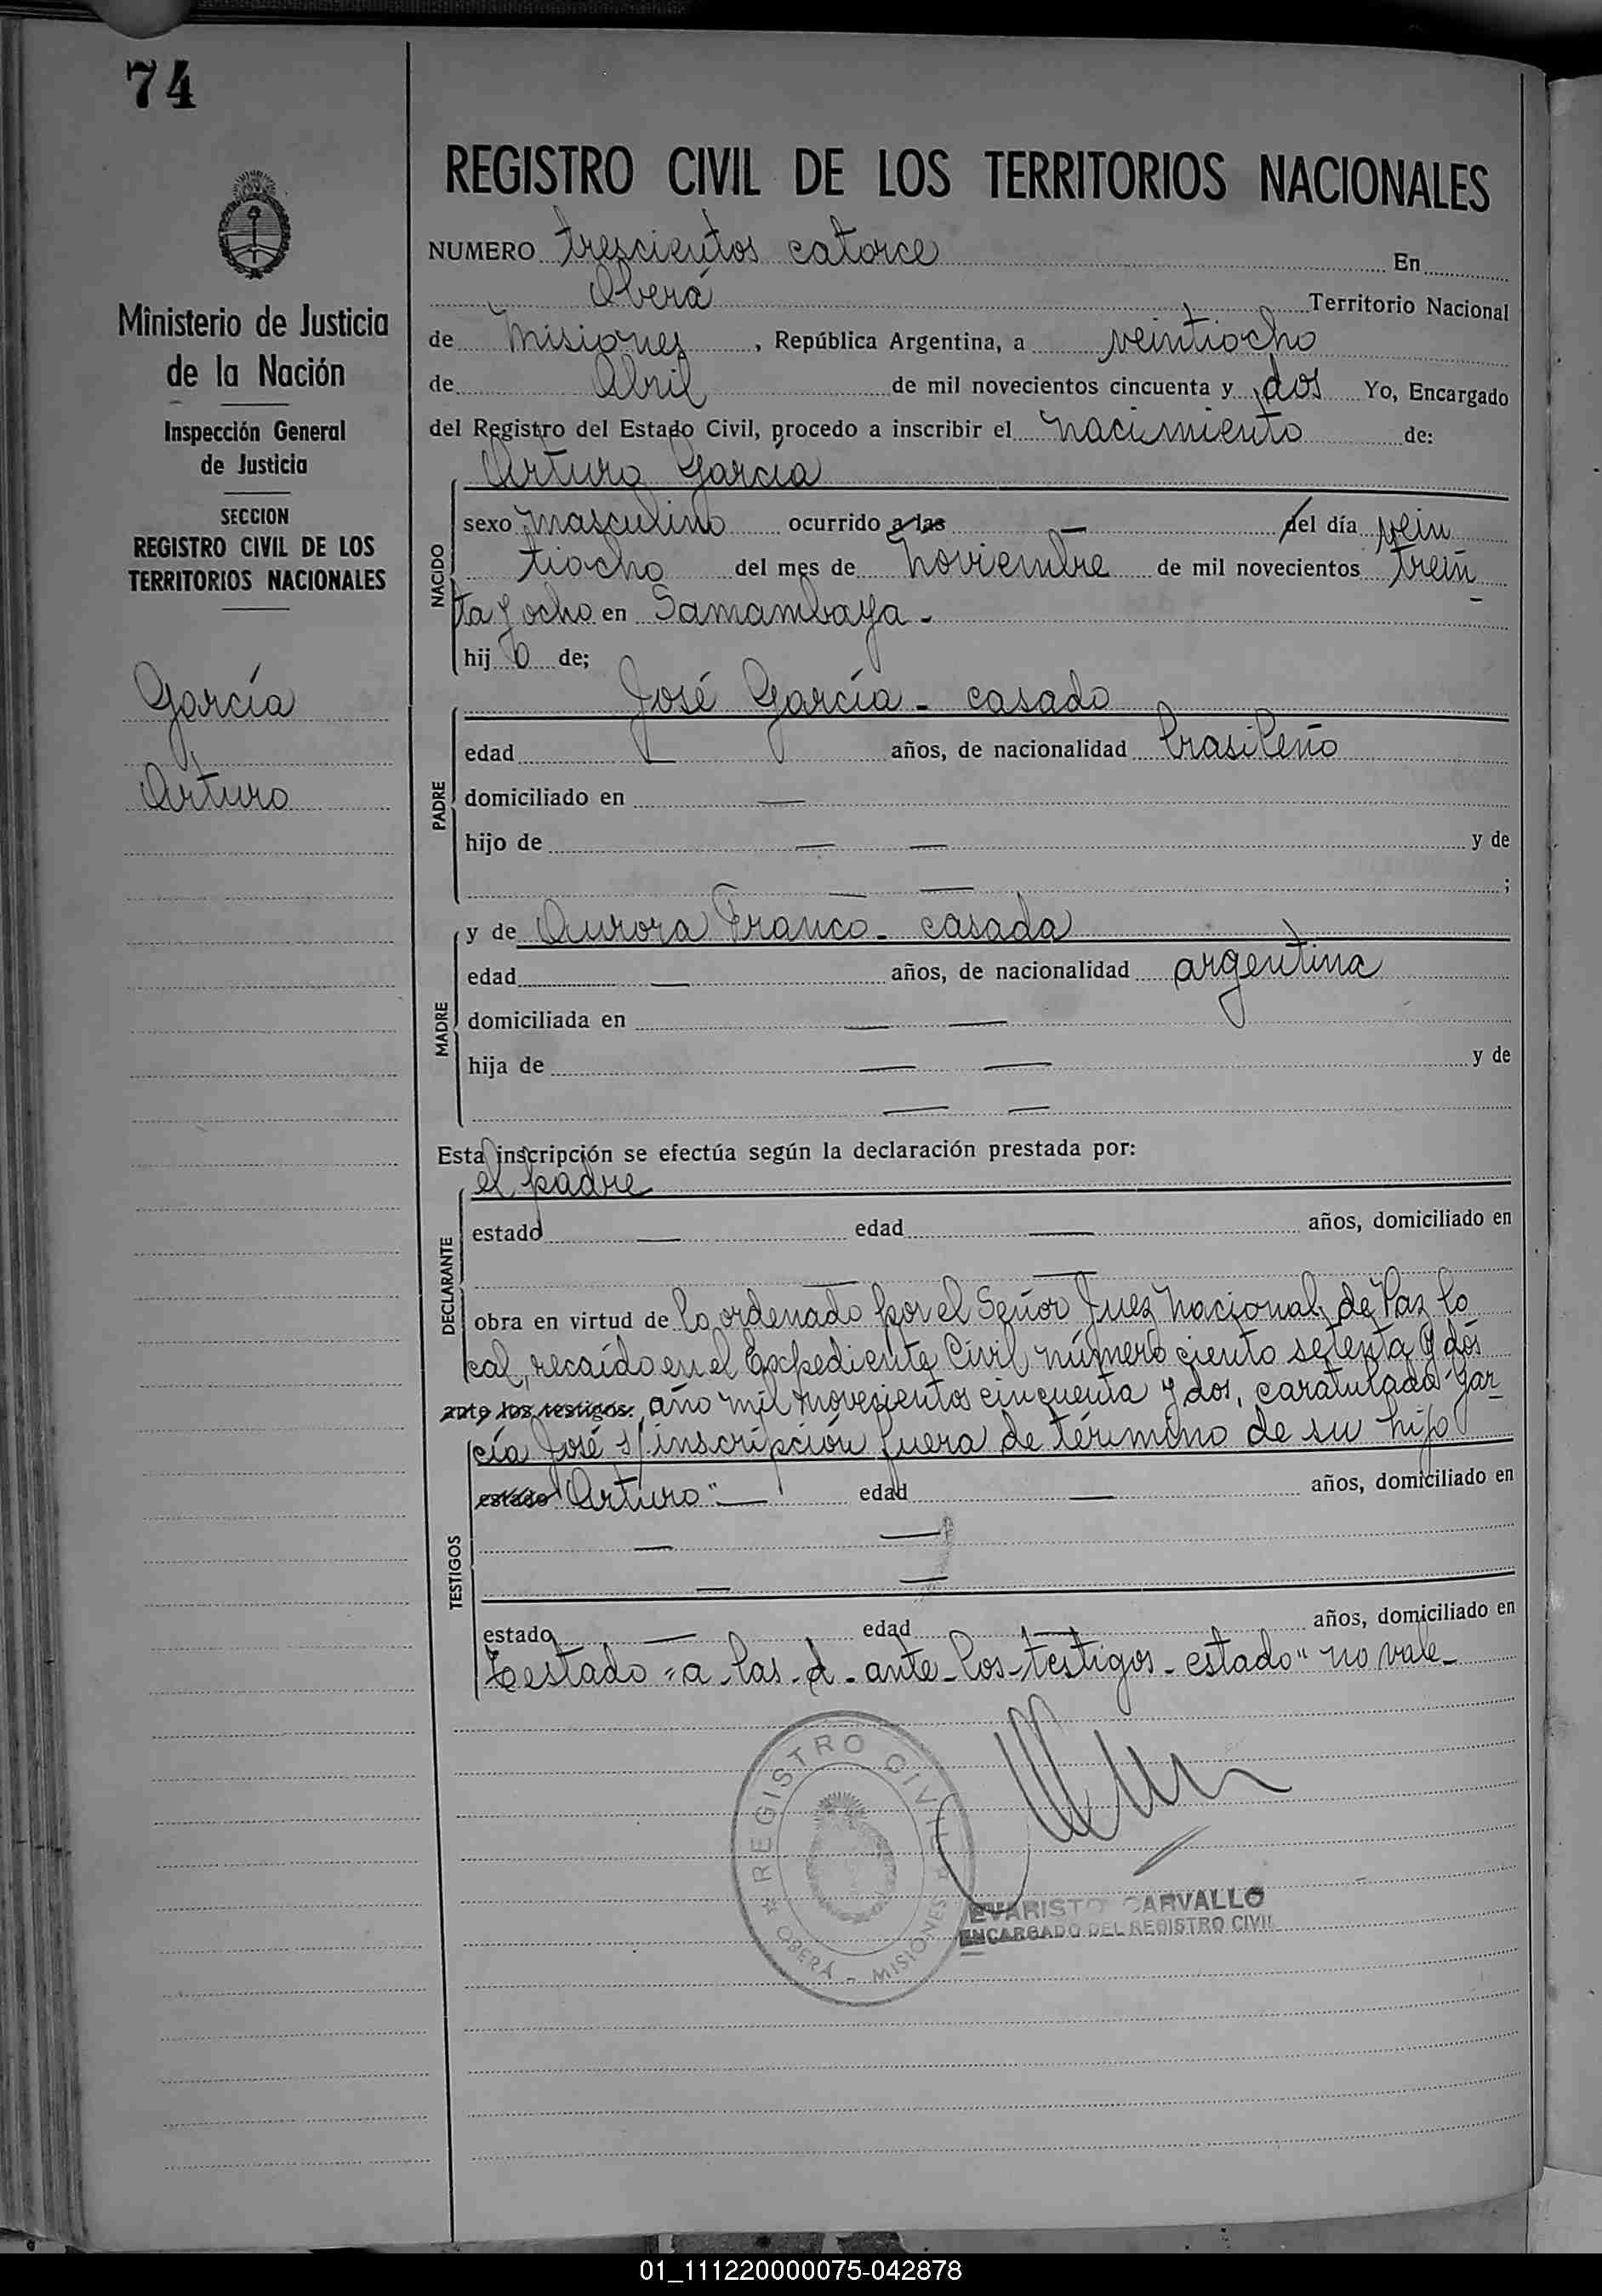 74
Ministerio de Justicia
de la Nación
Inspección General
de Justicia
SECCION
REGISTRO CIVIL DE LOS
TERRITORIOS NACIONALES
García
Arturo
REGISTRO CIVIL DE LOS TERRITORIOS NACIONALES
NUMERO trescientos catorce En
Oberá Territorio Nacional
de Misiones, República Argentina, a veintiocho
de Abril de mil novecientos cincuenta y dos Yo, Encargado
del Registro del Estado Civil, procedo a inscribir el nacimiento de:
Arturo García
NACIDO
sexo masculino ocurrido a las — del día vein
tiocho del mes de noviembre de mil novecientos trein
ta y ocho en Samambaya -
hijo de;
José García - casado
PADRE
edad — años, de nacionalidad brasileño
domiciliado en —
hijo de — — y de
— — ;
y de Aurora Franco - casada
MADRE
edad — años, de nacionalidad argentina
domiciliada en — —
hija de — — y de
— —
Esta inscripción se efectúa según la declaración prestada por:
el padre
DECLARANTE
estado — edad — años, domiciliado en
— —
obra en virtud de lo ordenado por el Señor Juez Nacional de Paz lo
cal, recaído en el Expediente Civil número ciento setenta y dos
ante los testigos: año mil novecientos cincuenta y dos, caratulado "Gar
cía José s/ inscripción fuera de término de su hijo
TESTIGOS
estado Arturo" — edad — años, domiciliado en
— —
— —
estado — edad — años, domiciliado en
Testado "a las - d - ante - los - testigos - estado" no vale -
REGISTRO CIVIL
OBERÁ - MISIONES
EVARISTO CARVALLO
ENCARGADO DEL REGISTRO CIVIL
01_111220000075-042878